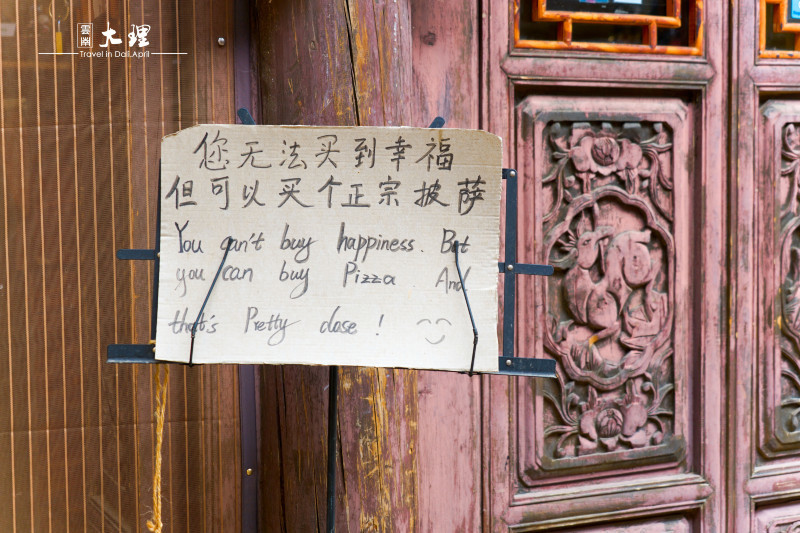 雲幽 大理
Travel in Dali.April
您无法买到幸福
但可以买个正宗披萨
You can't buy happiness. But
you can buy Pizza And
that's Pretty close!